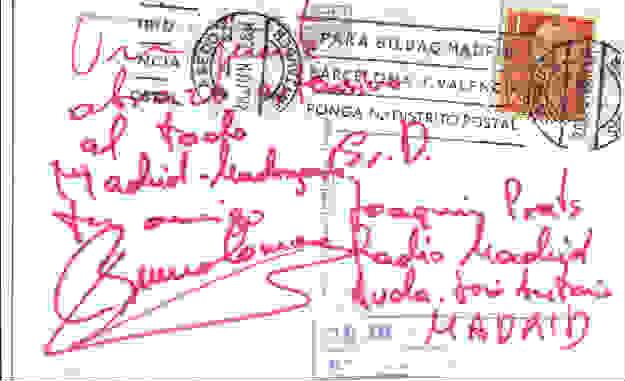 PARA BILBAO MADRID
BARCELONA Y VALENCIA
PONGA N.º DISTRITO POSTAL
Un
abrazo
al todo
Madrid-Madrugada
tu amigo
Sr. D.
Joaquin Prats
Radio Madrid
Avda. José Antonio
MADRID